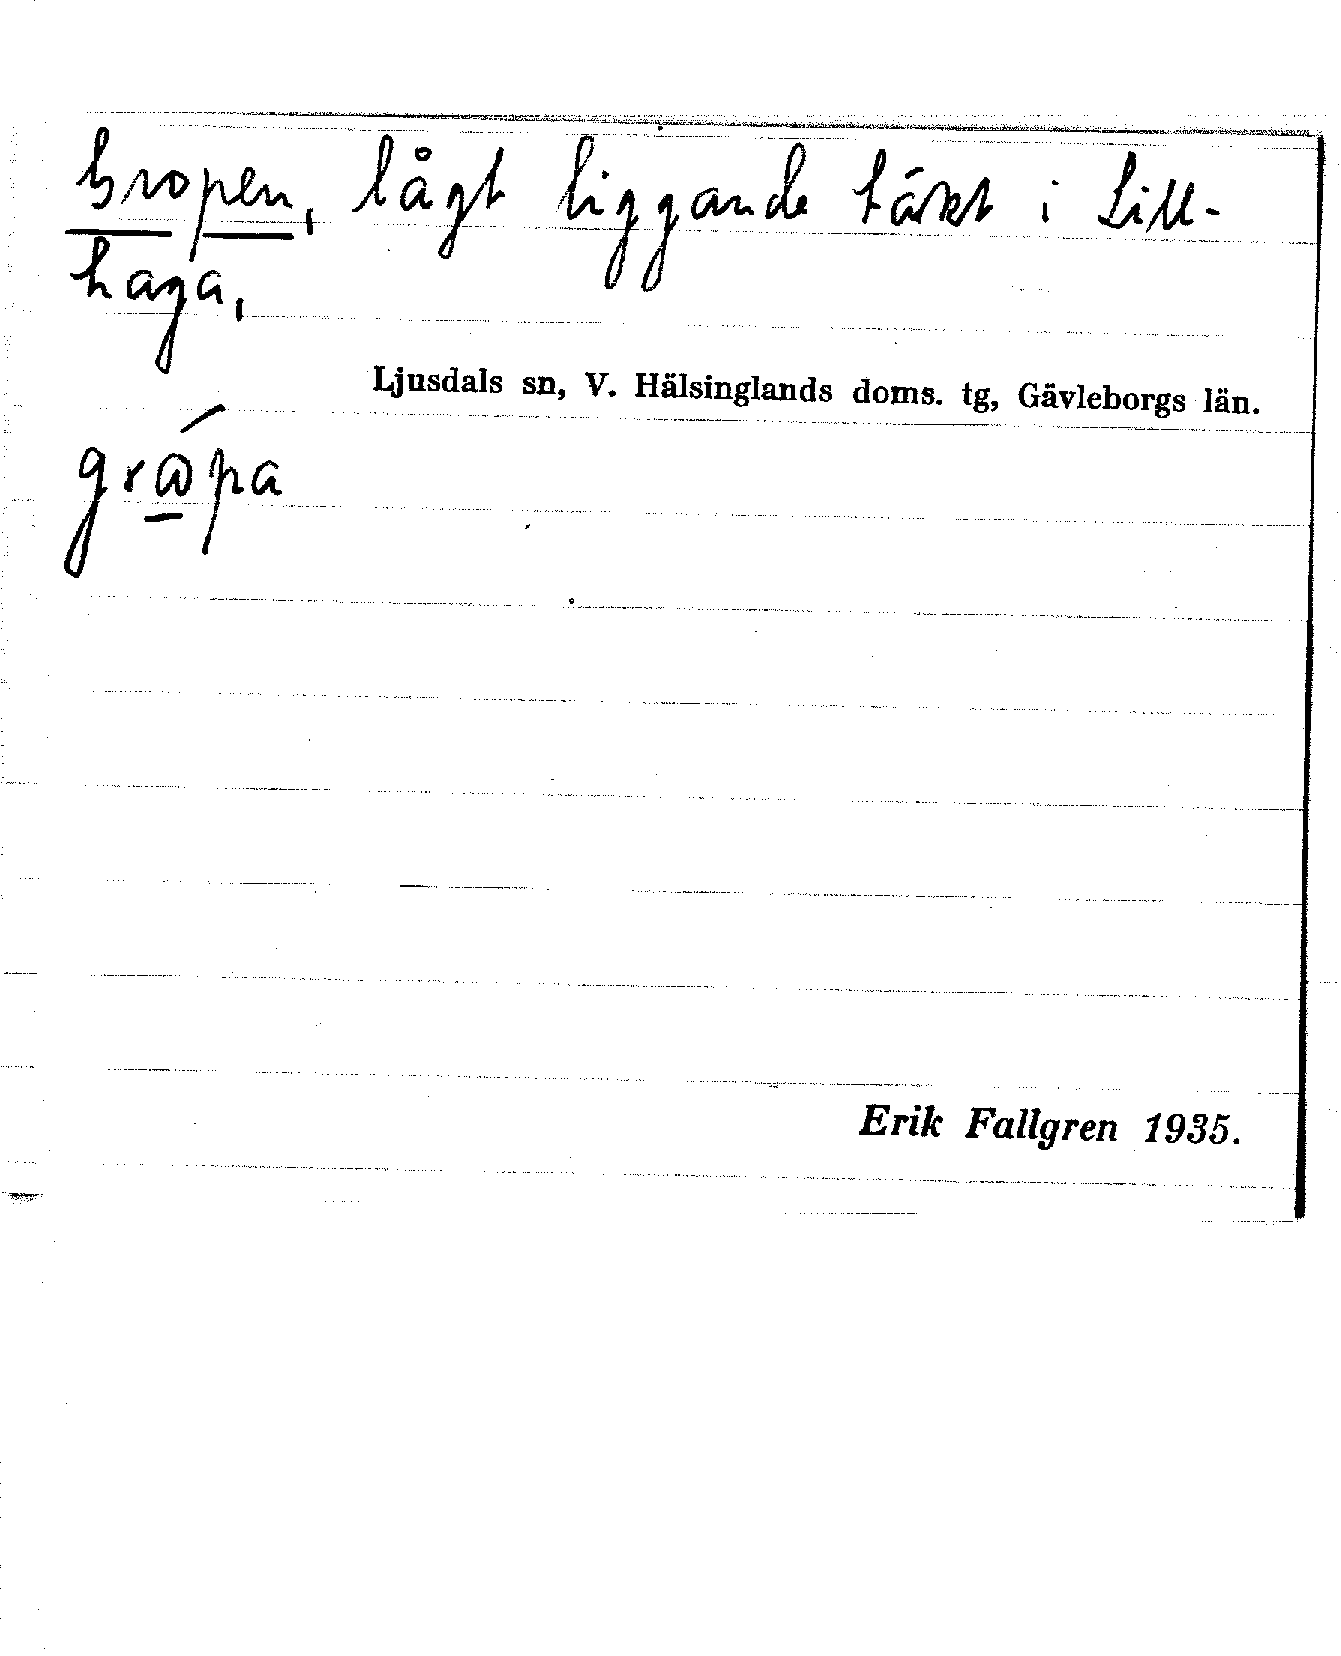 Gropen, lågt liggande täkt i Lill-
haga,
Ljusdals sn, V. Hälsinglands doms. tg, Gävleborgs län.
grώ̲pa
Erik Fallgren 1935.